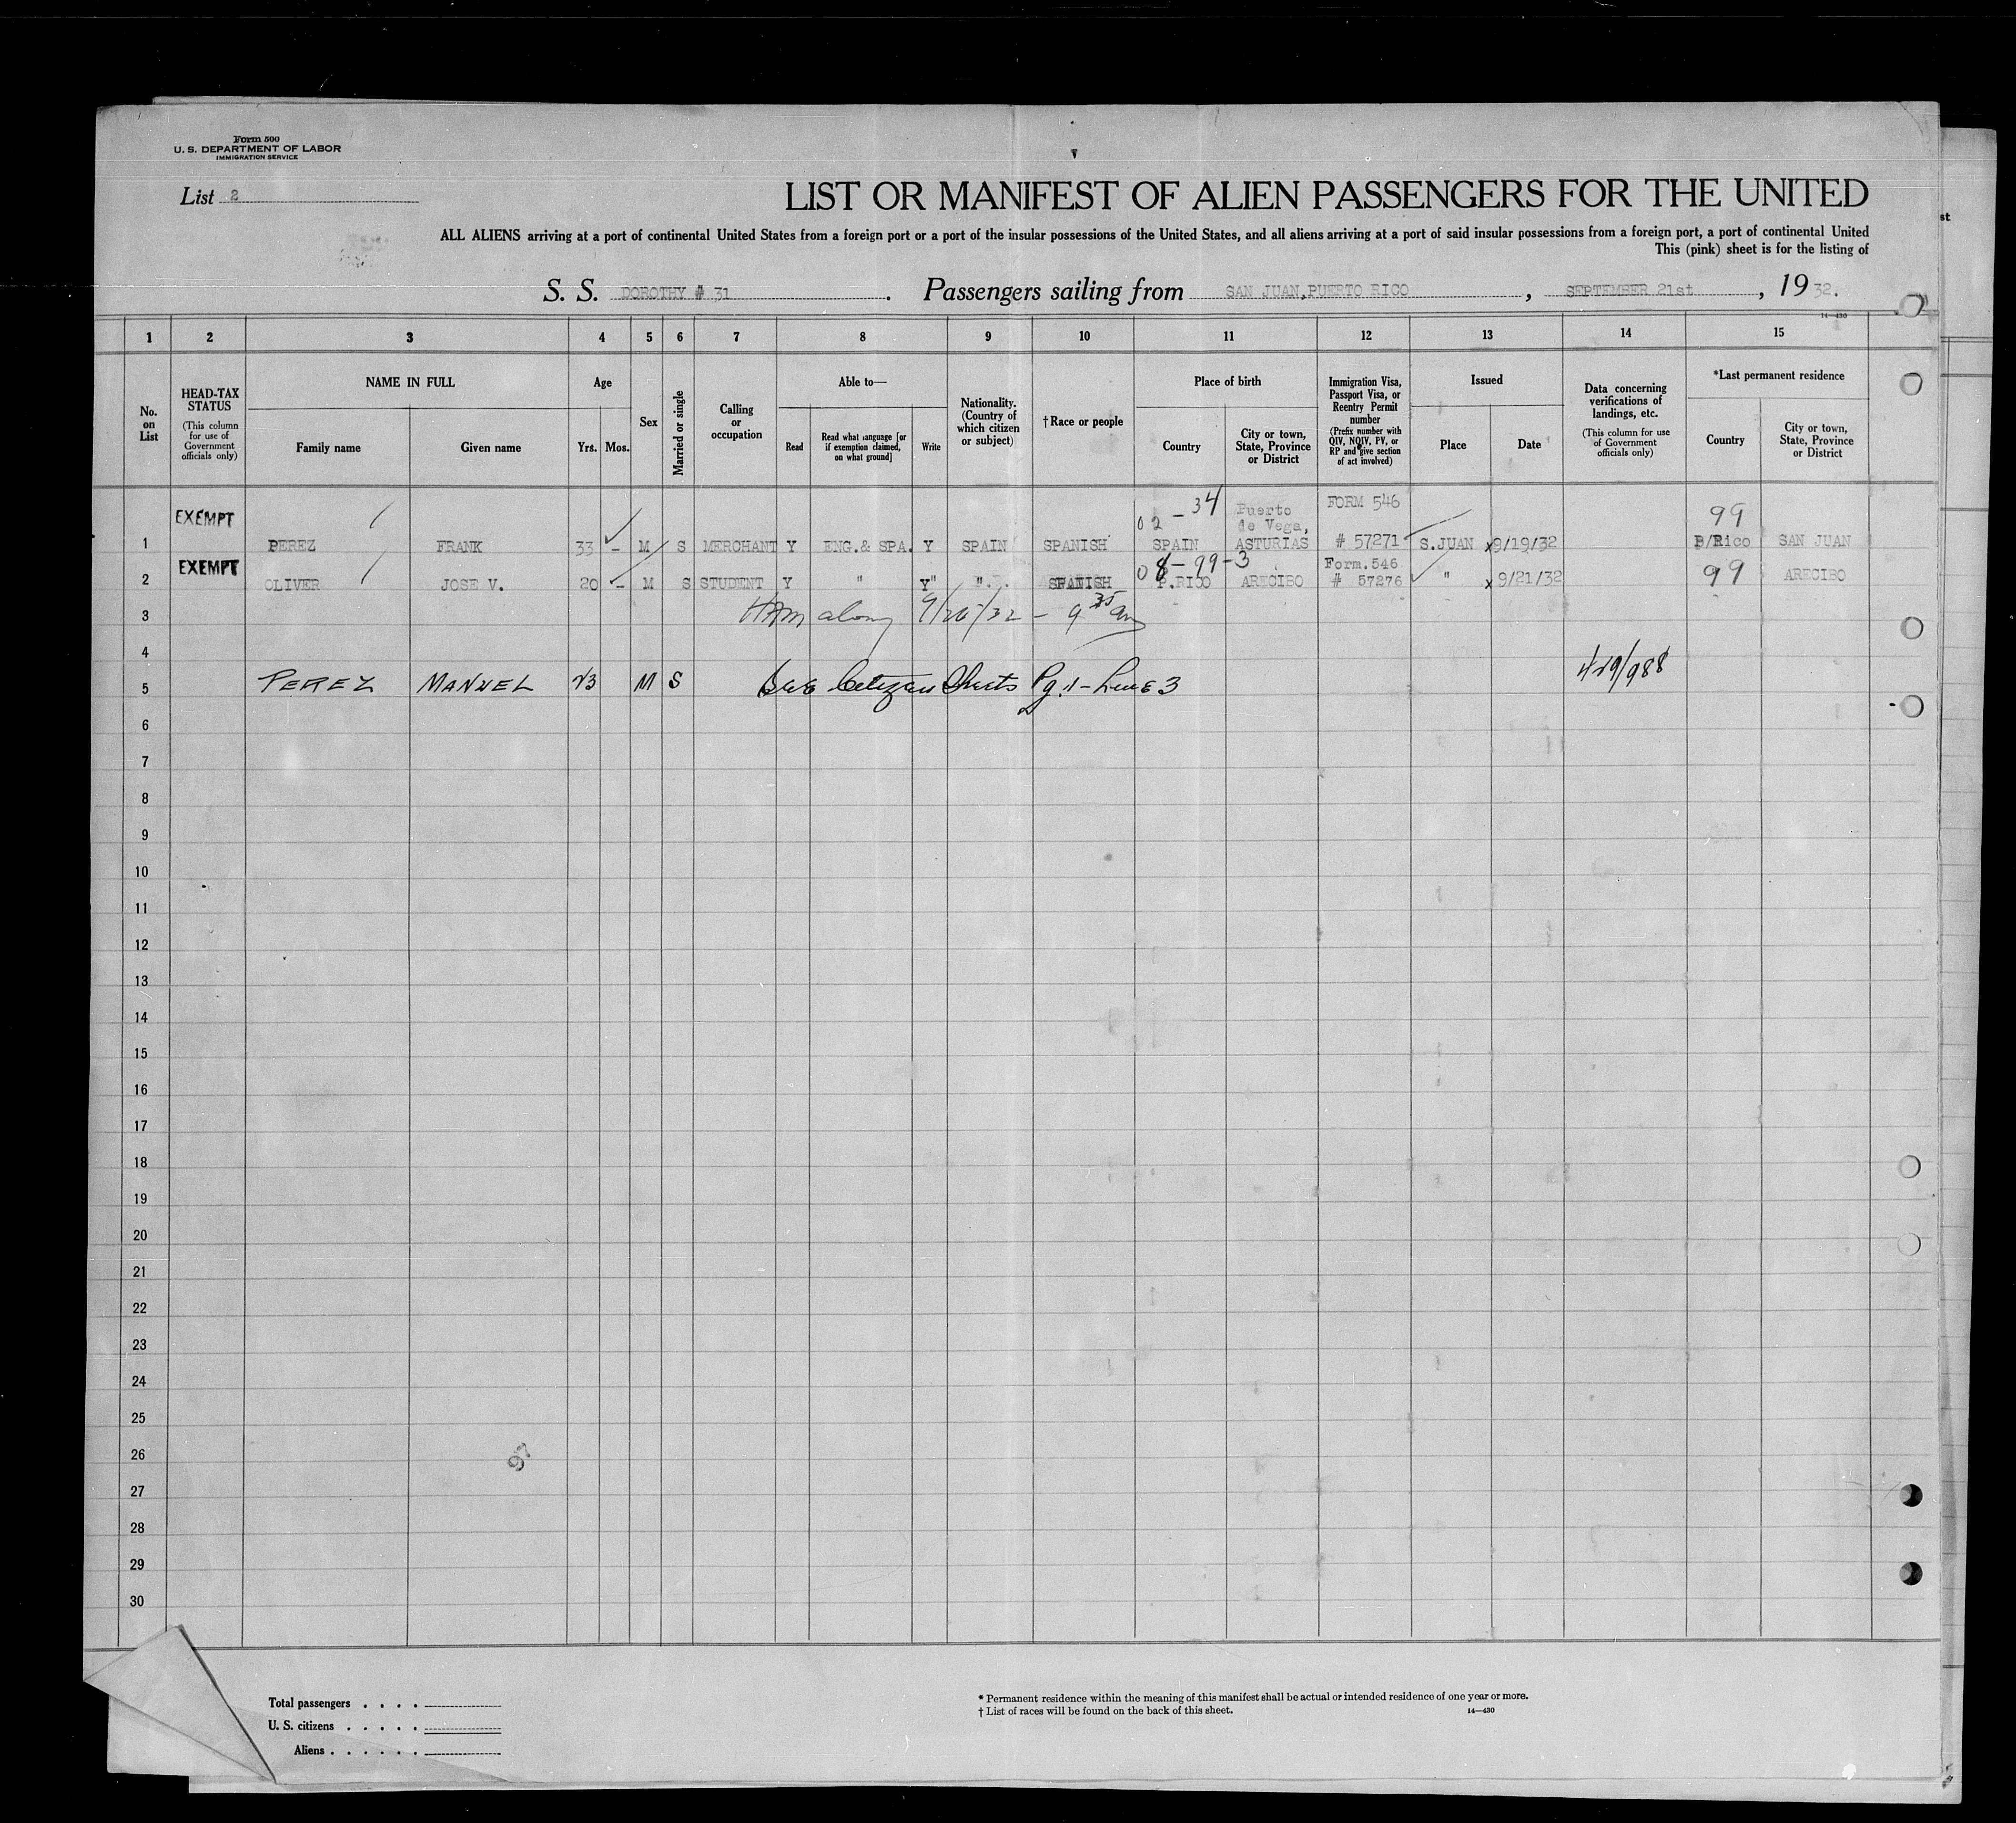 Form 500
U. S. DEPARTMENT OF LABOR
IMMIGRATION SERVICE
List 2
LIST OR MANIFEST OF ALIEN PASSENGERS FOR THE UNITED
ALL ALIENS arriving at a port of continental United States from a foreign port or a port of the insular possessions of the United States, and all aliens arriving at a port of said insular possessions from a foreign port, a port of continental United
This (pink) sheet is for the listing of
st
S. S. DOROTHY # 31. Passengers sailing from SAN JUAN, PUERTO RICO, SEPTEMBER 21st, 19 32.
14—430
1 2 3 4 5 6 7 8 9 10 11 12 13 14 15
No. on List
HEAD-TAX STATUS (This column for use of Government officials only)
NAME IN FULL
Family name
Given name
Age
Yrs.
Mos.
Sex
Married or single
Calling or occupation
Able to—
Read
Read what language [or if exemption claimed, on what ground]
Write
Nationality. (Country of which citizen or subject)
† Race or people
Place of birth
Country
City or town, State, Province or District
Immigration Visa, Passport Visa, or Reentry Permit number (Prefix number with QIV, NQIV, PV, or RP and give section of act involved)
Issued
Place
Date
Data concerning verifications of landings, etc. (This column for use of Government officials only)
*Last permanent residence
Country
City or town, State, Province or District
EXEMPT 02-34 Puerto de Vega, FORM 546 99
1 PEREZ FRANK 33 - M S MERCHANT Y ENG.& SPA. Y SPAIN SPANISH SPAIN ASTURIAS # 57271 S.JUAN x9/19/32 P/Rico SAN JUAN
EXEMPT 08-99-3 Form.546
2 OLIVER JOSE V. 20 - M S STUDENT Y " Y" " SPANISH P.RICO ARECIBO # 57276 " x9/21/32 99 ARECIBO
3 along 9/26/32 - 9 35 am
4
5 PEREZ MANUEL 23 M S See Citizen Sheets Pg. 1 - Line 3 429/988
6
7
8
9
10
11
12
13
14
15
16
17
18
19
20
21
22
23
24
25
26
97
27
28
29
30
Total passengers . . . .
U. S. citizens . . . . .
Aliens . . . . . .
* Permanent residence within the meaning of this manifest shall be actual or intended residence of one year or more.
† List of races will be found on the back of this sheet.
14—430